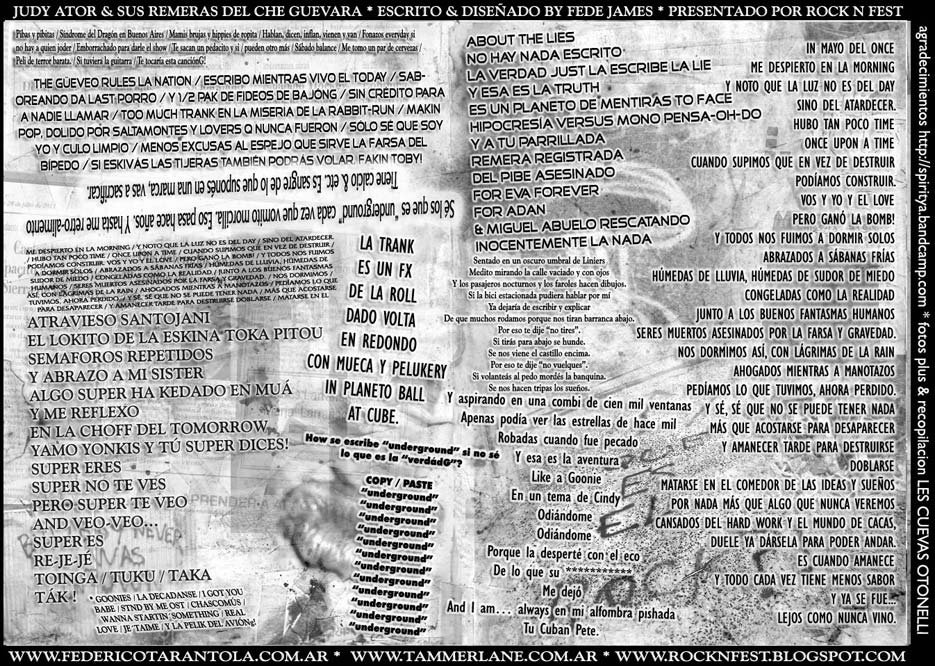 JUDY ATOR & SUS REMERAS DEL CHE GUEVARA * ESCRITO & DISEÑADO BY FEDE JAMES * PRESENTADO POR ROCK N FEST
Pibas y pibitas / Sindrome del Dragón en Buenos Aires / Mamis brujas y hippies de ropita / Hablan, dicen, inflan, vienen y van / Fonazos everyday si
no hay a quien joder / Emborrachado para darle el show / Te sacan un pedacito y si / pueden otro más / Sábado balance / Me tomo un par de cervezas /
Peli de terror barata. / Si tuviera la guitarra / Te tocaría esta cancióng!
THE GÜEVEO RULES LA NATION / ESCRIBO MIENTRAS VIVO EL TODAY / SAB-
OREANDO DA LAST PORRO / Y 1/2 PAK DE FIDEOS DE BAJÓNG / SIN CRÉDITO PARA
A NADIE LLAMAR / TOO MUCH TRANK EN LA MISERIA DE LA RABBIT-RUN / MAKIN
POP, DOLIDO POR SALTAMONTES Y LOVERS Q NUNCA FUERON / SOLO SÉ QUE SOY
YO Y CULO LIMPIO / MENOS EXCUSAS AL ESPEJO QUE SIRVE LA FARSA DEL
BÍPEDO / SI ESKIVÁS LAS TIJERAS TAMBIÉN PODRÁS VOLAR, FAKIN TOBY!
Sé los que es "underground" cada vez que vomito morcilla. Eso pasa hace años. Y hasta me retro-alimento
Tiene caldo & etc. Es sangre de lo que suponés en una marca, vas a sacrificar.
ME DESPIERTO EN LA MORNING / Y NOTO QUE LA LUZ NO ES DEL DAY / SINO DEL ATARDECER.
/ HUBO TAN POCO TIME / ONCE UPON A TIME / CUANDO SUPIMOS QUE EN VEZ DE DESTRUIR /
PODÍAMOS CONSTRUIR. VOS Y YO Y EL LOVE / PERO GANÓ LA BOMB! / Y TODOS NOS FUIMOS
A DORMIR SOLOS / ABRAZADOS A SÁBANAS FRÍAS / HÚMEDAS DE LLUVIA, HÚMEDAS DE
SUDOR DE MIEDO / CONGELADAS COMO LA REALIDAD / JUNTO A LOS BUENOS FANTASMAS
HUMANOS / SERES MUERTOS ASESINADOS POR LA FARSA Y GRAVEDAD. / NOS DORMIMOS
ASÍ, CON LÁGRIMAS DE LA RAIN / AHOGADOS MIENTRAS A MANOTAZOS / PEDÍAMOS LO QUE
TUVIMOS, AHORA PERDIDO. / Y SÉ, SÉ QUE NO SE PUEDE TENER NADA / MÁS QUE ACOSTARSE
PARA DESAPARECER / Y AMANECER TARDE PARA DESTRUIRSE DOBLARSE / MATARSE EN EL
ATRAVIESO SANTOJANI
EL LOKITO DE LA ESKINA TOKA PITOU
SEMAFOROS REPETIDOS
Y ABRAZO A MI SISTER
ALGO SUPER HA KEDADO EN MUÁ
Y ME REFLEXO
EN LA CHOFF DEL TOMORROW,
YAMO YONKIS Y TÚ SUPER DICES!
SUPER ERES
SUPER NO TE VES
PERO SUPER TE VEO
AND VEO-VEO...
SUPER ES
RE-JE-JÉ
TOINGA / TUKU / TAKA
TÁK !
* GOONIES / LA DECADANSE / I GOT YOU
BABE / STND BY ME OST / CHASCOMÚS
WANNA STARTIN' SOMETHING / REAL
LOVE / JE TAIME / Y LA PELIK DEL AVIÓNg!
LA TRANK
ES UN FX
DE LA ROLL
DADO VOLTA
EN REDONDO
CON MUECA Y PELUKERY
IN PLANETO BALL
AT CUBE.
How se escribe "underground" si no sé
lo que es la "verdédG"?
COPY / PASTE
"underground"
"underground"
"underground"
"underground"
"underground"
"underground"
"underground"
"underground"
"underground"
"underground"
"underground"
"underground"
ABOUT THE LIES
NO HAY NADA ESCRITO
LA VERDAD JUST LA ESCRIBE LA LIE
Y ESA ES LA TRUTH
ES UN PLANETO DE MENTIRAS TO FACE
HIPOCRESÍA VERSUS MONO PENSA-OH-DO
Y A TU PARRILLADA
REMERA REGISTRADA
DEL PIBE ASESINADO
FOR EVA FOREVER
FOR ADAN
& MIGUEL ABUELO RESCATANDO
INOCENTEMENTE LA NADA
Sentado en un oscuro umbral de Liniers
Medito mirando la calle vaciado y con ojos
Y los pasajeros nocturnos y los faroles hacen dibujos.
Si la bici estacionada pudiera hablar por mí
Ya dejaría de escribir y explicar
De que muchos rodamos porque nos tiran barranca abajo.
Por eso te dije "no tires".
Si tirás para abajo se hunde.
Se nos viene el castillo encima.
Por eso te dije "no vuelques".
Si volanteás al pedo mordés la banquina.
Se nos hacen tripas los sueños.
Y aspirando en una combi de cien mil ventanas
Apenas podía ver las estrellas de hace mil
Robadas cuando fue pecado
Y esa es la aventura
Like a Goonie
En un tema de Cindy
Odiándome
Odiándome
Porque la desperté con el eco
De lo que su ***********
Me dejó
And I am... always en mi alfombra pishada
Tu Cuban Pete.
IN MAYO DEL ONCE
ME DESPIERTO EN LA MORNING
Y NOTO QUE LA LUZ NO ES DEL DAY
SINO DEL ATARDECER.
HUBO TAN POCO TIME
ONCE UPON A TIME
CUANDO SUPIMOS QUE EN VEZ DE DESTRUIR
PODÍAMOS CONSTRUIR.
VOS Y YO Y EL LOVE
PERO GANÓ LA BOMB!
Y TODOS NOS FUIMOS A DORMIR SOLOS
ABRAZADOS A SÁBANAS FRÍAS
HÚMEDAS DE LLUVIA, HÚMEDAS DE SUDOR DE MIEDO
CONGELADAS COMO LA REALIDAD
JUNTO A LOS BUENOS FANTASMAS HUMANOS
SERES MUERTOS ASESINADOS POR LA FARSA Y GRAVEDAD.
NOS DORMIMOS ASÍ, CON LÁGRIMAS DE LA RAIN
AHOGADOS MIENTRAS A MANOTAZOS
PEDÍAMOS LO QUE TUVIMOS, AHORA PERDIDO.
Y SÉ, SÉ QUE NO SE PUEDE TENER NADA
MÁS QUE ACOSTARSE PARA DESAPARECER
Y AMANECER TARDE PARA DESTRUIRSE
DOBLARSE
MATARSE EN EL COMEDOR DE LAS IDEAS Y SUEÑOS
POR NADA MÁS QUE ALGO QUE NUNCA VEREMOS
CANSADOS DEL HARD WORK Y EL MUNDO DE CACAS,
DUELE YA DÁRSELA PARA PODER ANDAR.
ES CUANDO AMANECE
Y TODO CADA VEZ TIENE MENOS SABOR
Y YA SE FUE...
LEJOS COMO NUNCA VINO.
agradecimientos http://spiritya.bandcamp.com * fotos plus & recopilacion LES CUEVAS OTONELLI
WWW.FEDERICOTARANTOLA.COM.AR * WWW.TAMMERLANE.COM.AR * WWW.ROCKNFEST.BLOGSPOT.COM